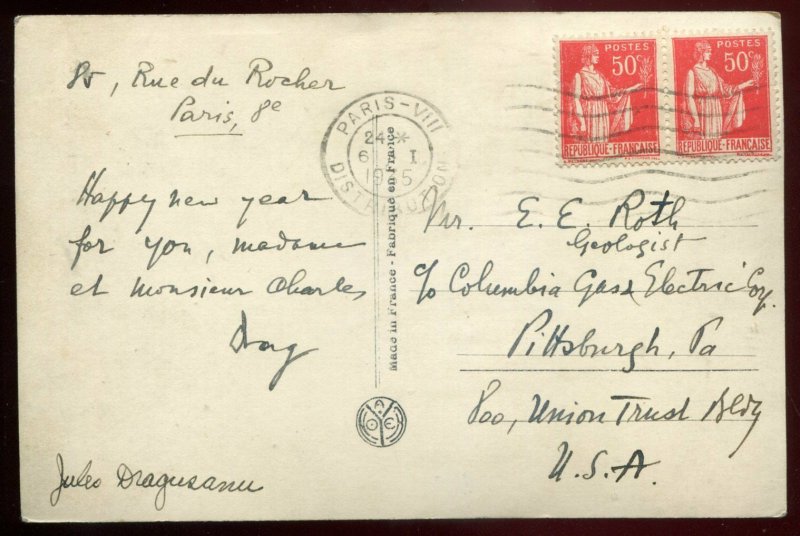 85, Rue du Rocher
Paris, 8e
Happy new year
for you, madame
et monsieur Charles
Drag
Jules Dragusanu
PARIS-VIII
24 *
6 I
DISTRIBUTION
Made in France - Fabriqué en France
POSTES
50c
REPUBLIQUE-FRANÇAISE
POSTES
50c
REPUBLIQUE-FRANÇAISE
Mr. E. E. Roth
Geologist
c/o Columbia Gas & Electric Corp.
Pittsburgh, Pa
800, Union Trust Bldg
U.S.A.